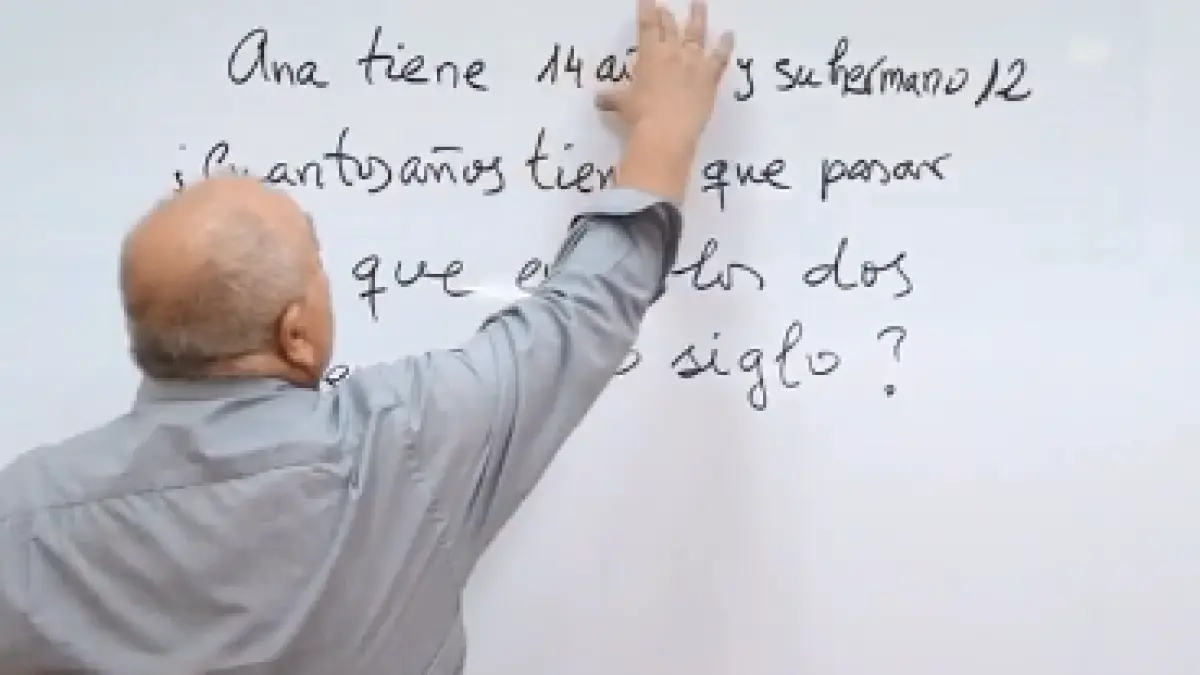 Ana tiene 14 y su hermano 12
¿Cuantos años tien que pasar
que los dos
siglo?